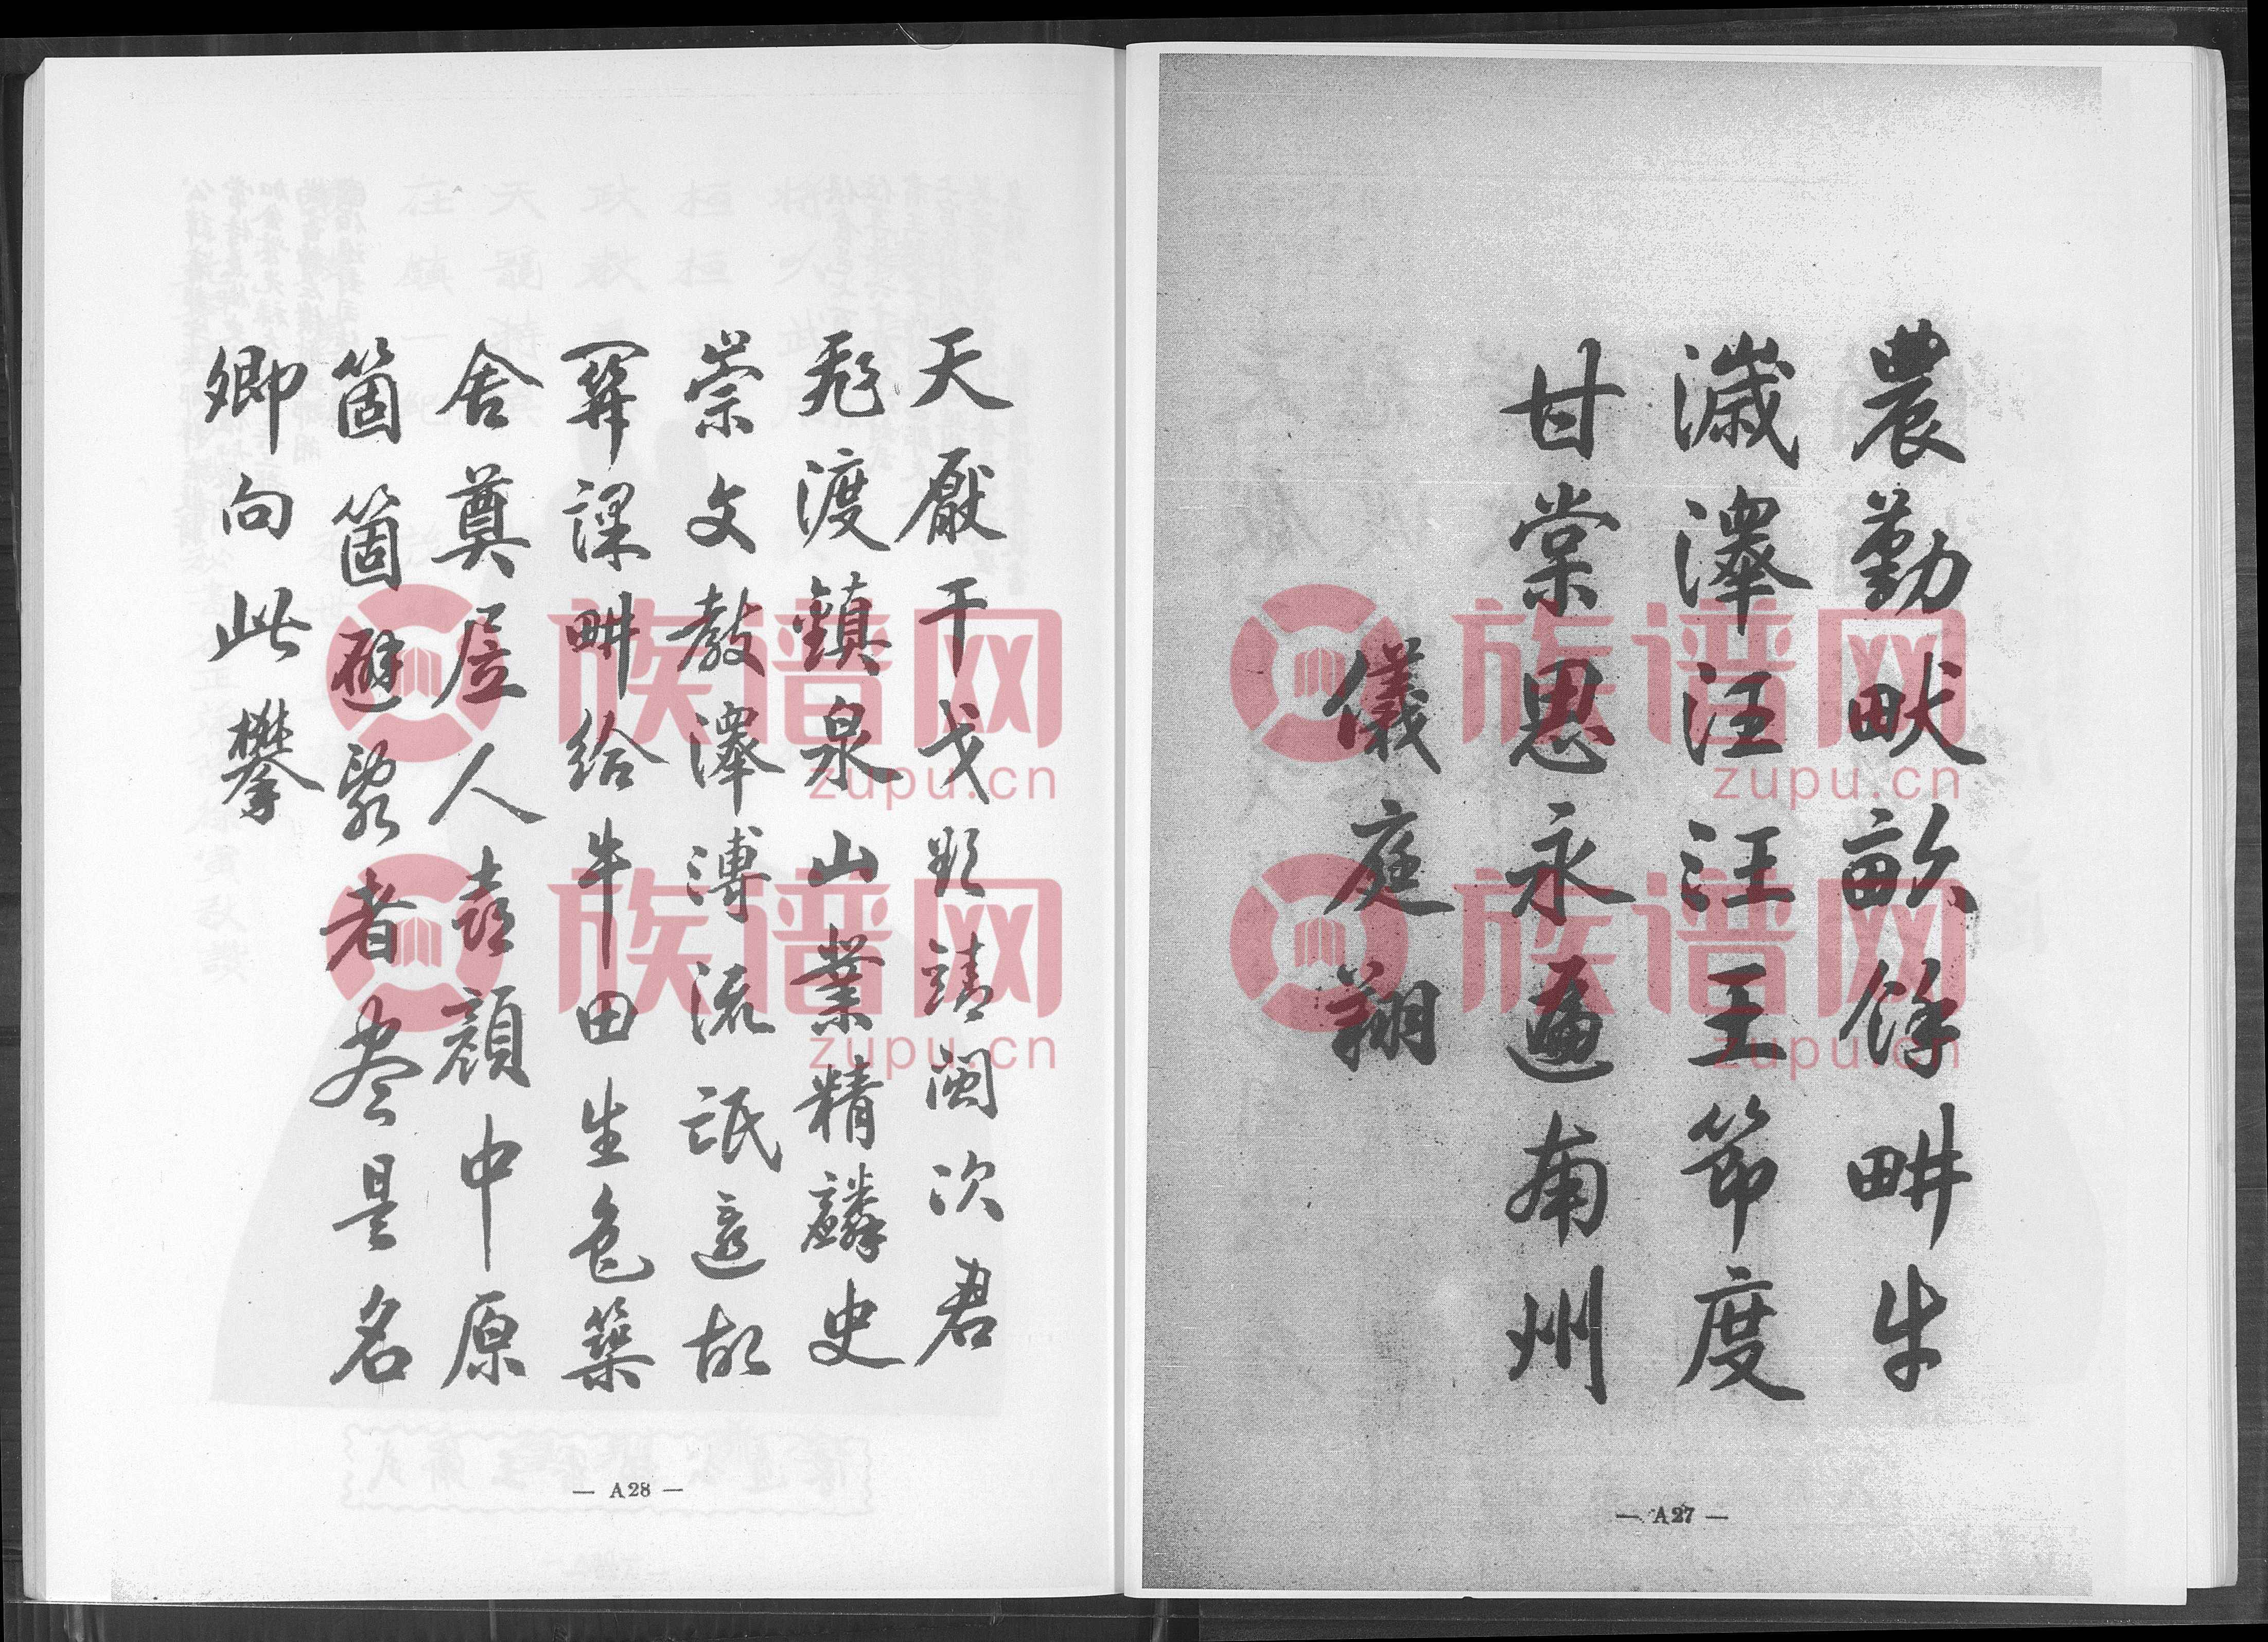 農勤畎畝餘畊牛
濊澤汪汪王節度
甘棠思永遍南州
儀庭翔
— A27 —
天厭干戈 靖閩次君
渡鎮泉山業精麟史
崇文教澤溥流氓遠
課畊給牛田生色築
舍奠居人喜顏中原
箇箇避亂者盡是名
卿向此攀
— A28 —
族谱网
zupu.cn
族谱网
zupu.cn
族谱网
zupu.cn
族谱网
zupu.cn